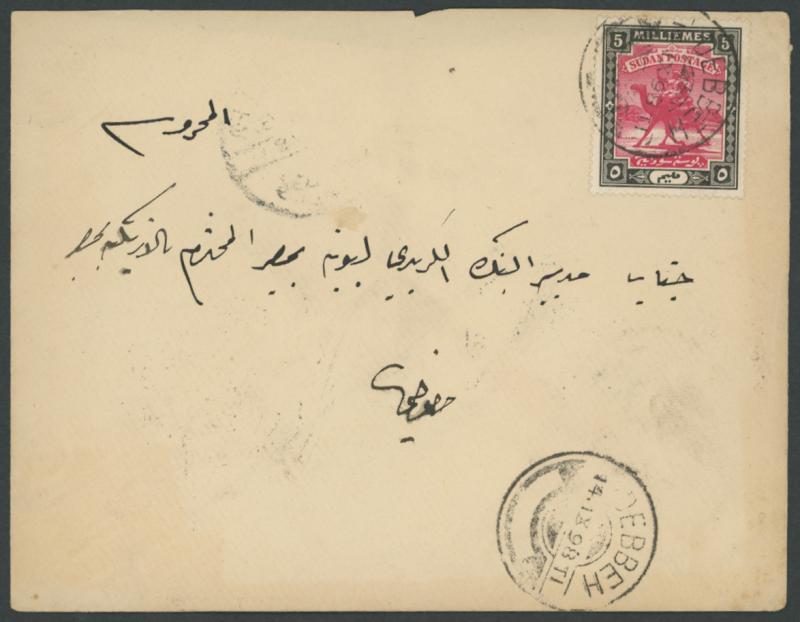 5 MILLIEMES 5
SUDAN POSTAGE
بوسته سودانيه
٥ مليم ٥
المحروسه
جناب مدير البنك الكريدي ليونيه بمصر المحترم بالازبكيه بمصر
DEBBEH
14.IX.98.T1